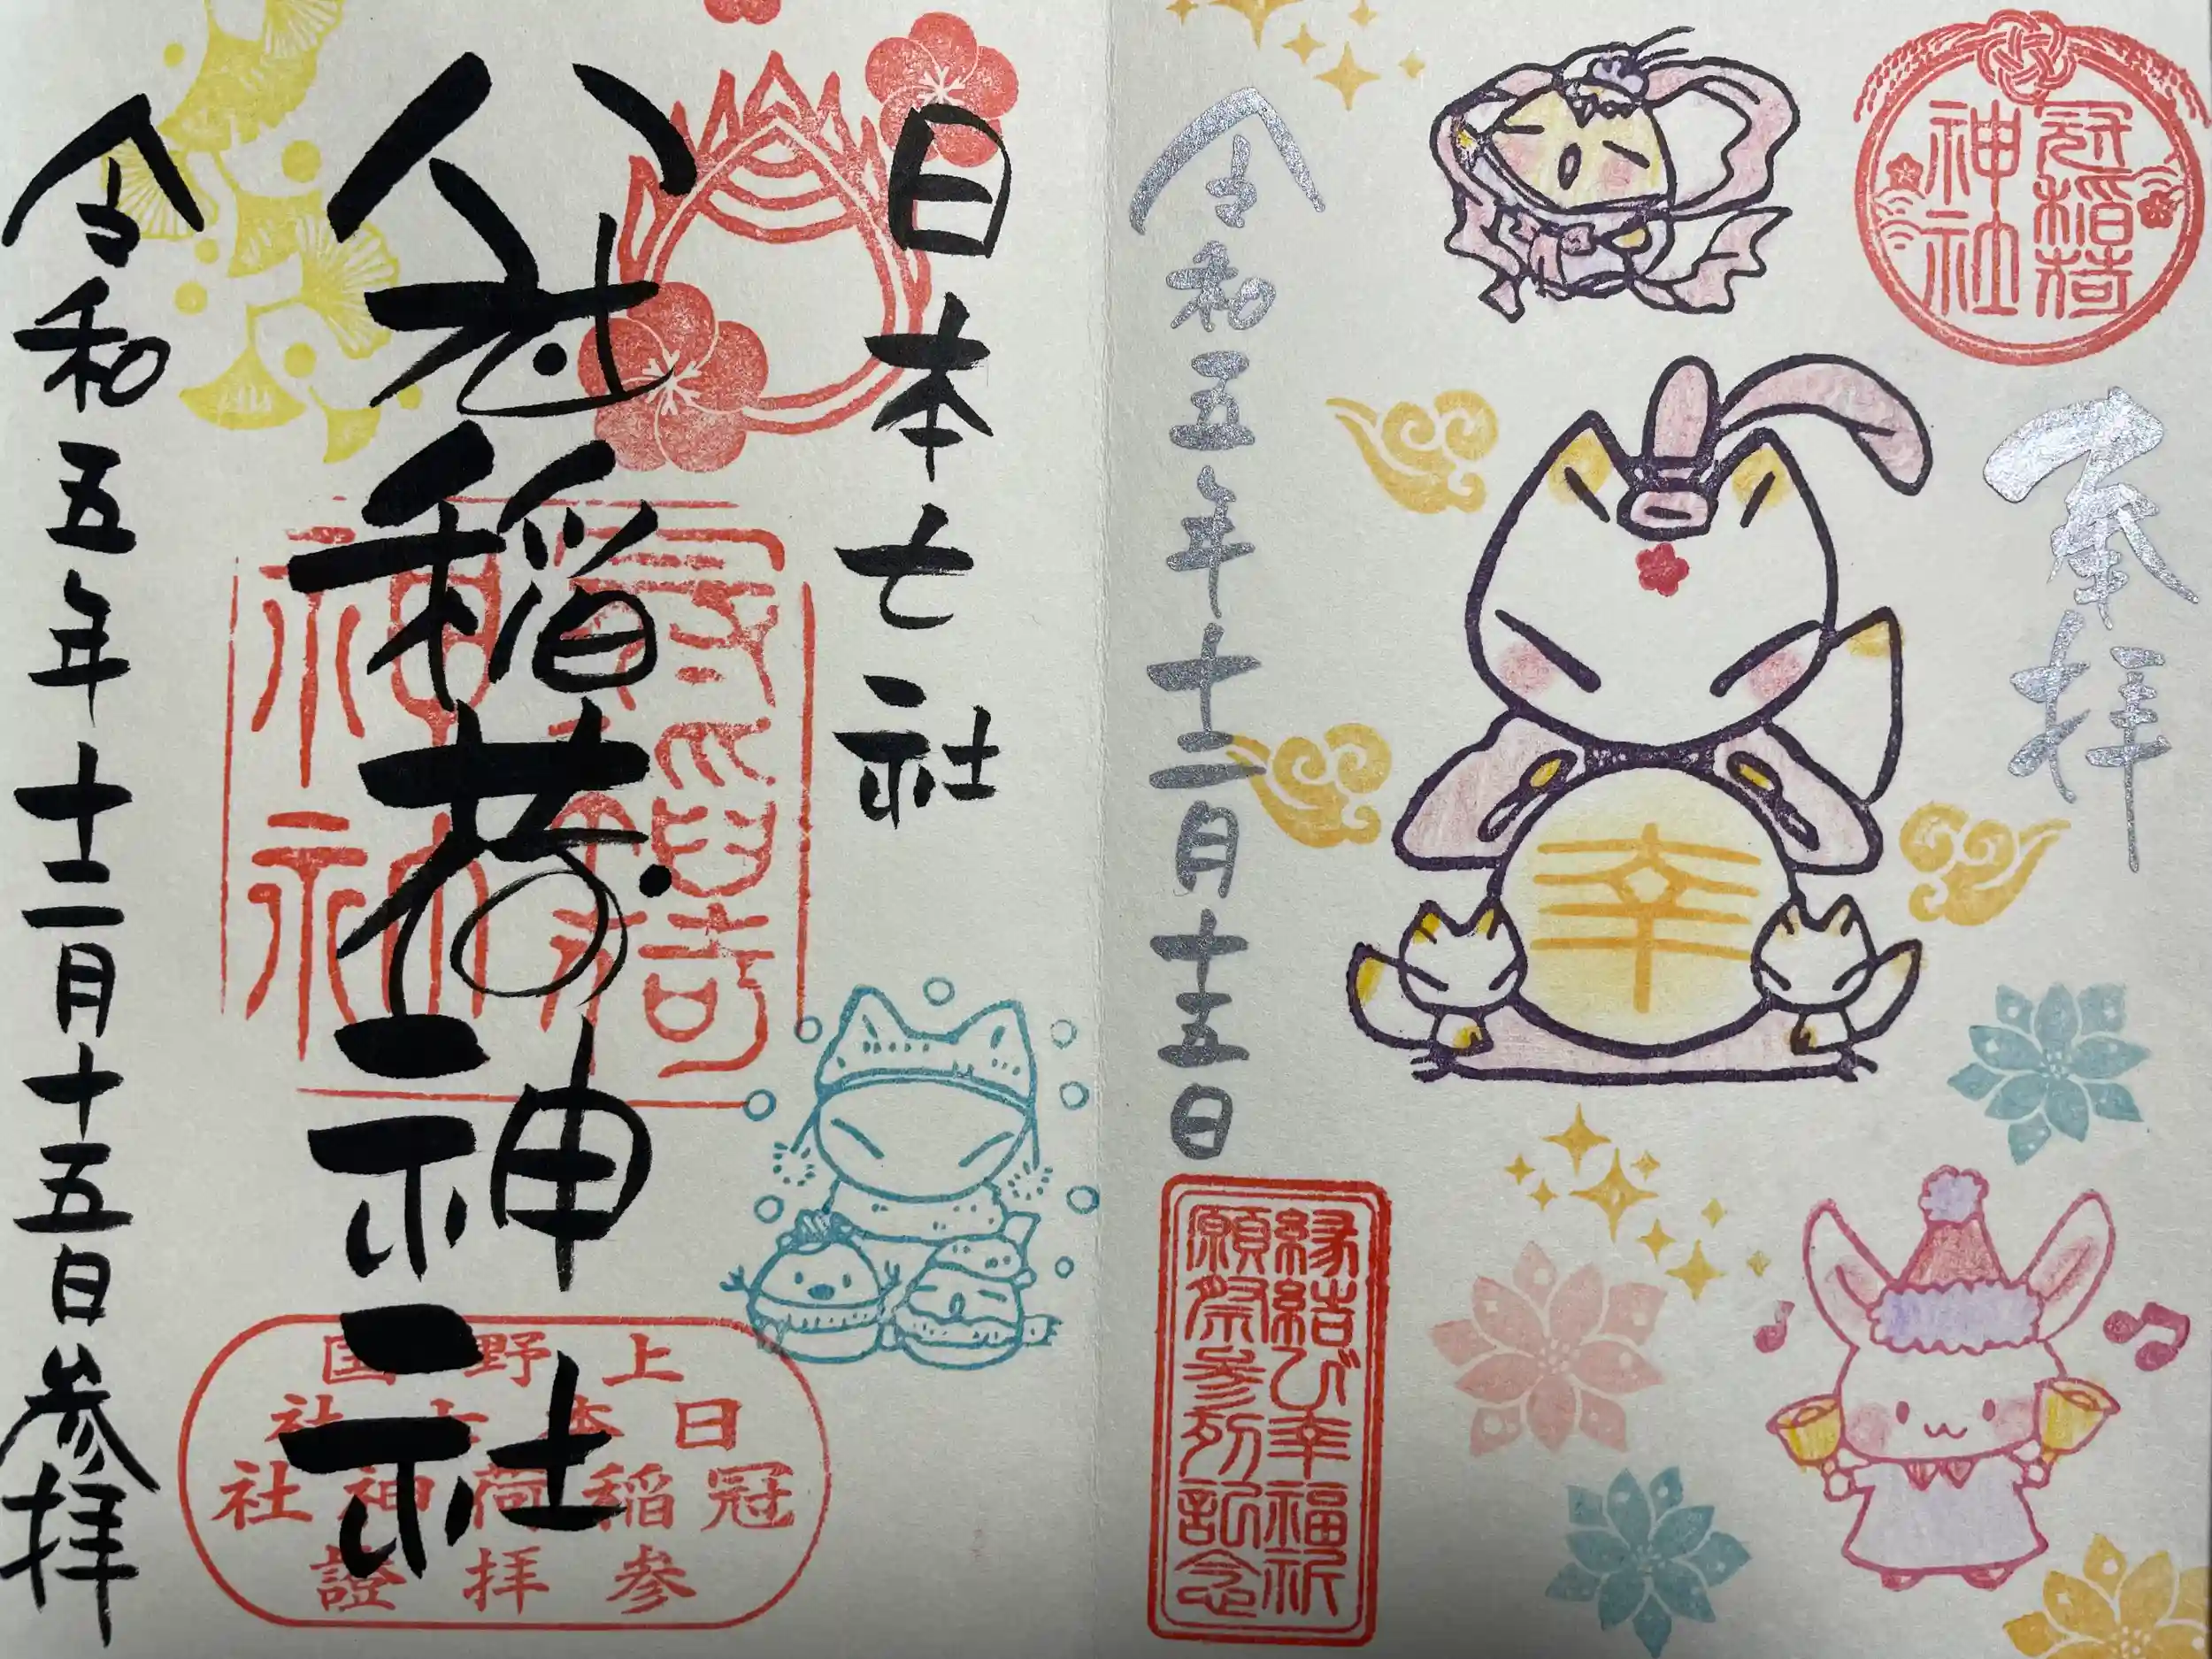 冠稲荷
神社
奉拝
幸
令和五年十二月十五日
縁結び幸福祈
願祭参列記念
日本七社
冠稲荷神社
冠稲荷
神社
上野国
日本七社
冠稲荷神社
参拝證
令和五年十二月十五日参拝